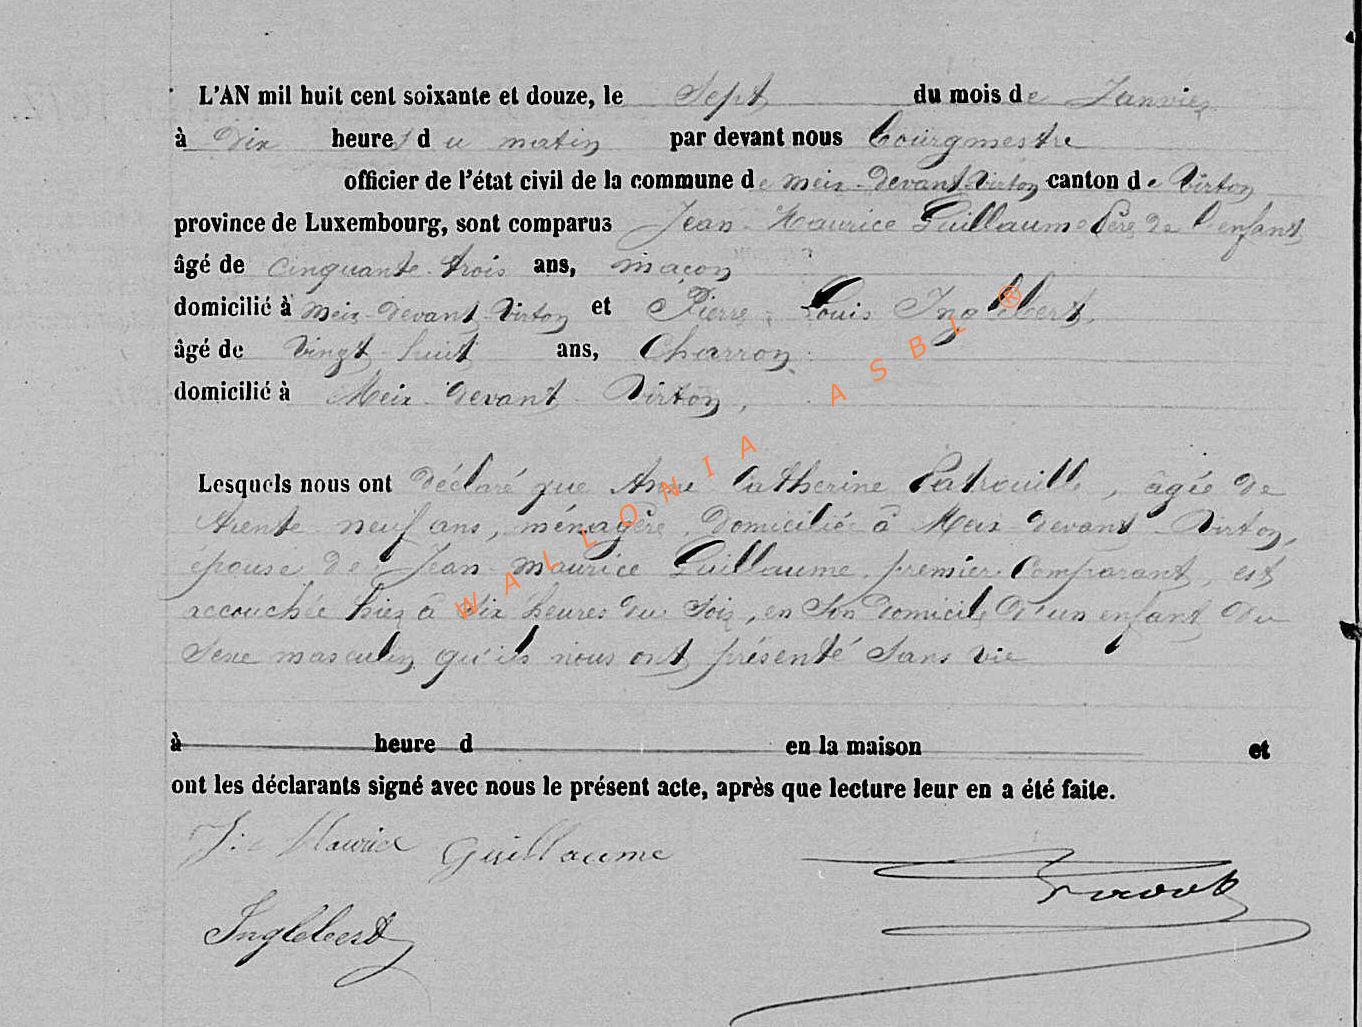 L'AN mil huit cent soixante et douze, le Sept du mois de Janvier
à dix heures du matin par devant nous bourgmestre
officier de l'état civil de la commune de meix-devant-Virton canton de Virton
province de Luxembourg, sont comparus Jean-Maurice Guillaume père de l'enfant
âgé de cinquante-trois ans, maçon
domicilié à meix-devant-Virton et Pierre-Louis Inglebert,
âgé de vingt huit ans, Charron
domicilié à Meix-devant-Virton,
Lesquels nous ont déclaré que Anne Catherine Patrouille, âgée de
trente neuf ans, ménagère, domiciliée à Meix-devant-Virton,
épouse de Jean-maurice Guillaume, premier Comparant, est
accouchée hier à dix heures du Soir, en Son domicile d'un enfant du
Sexe masculin, qu'ils nous ont présenté Sans vie
à heure d en la maison et
ont les déclarants signé avec nous le présent acte, après que lecture leur en a été faite.
J: Maurice Guillaume
Inglebert
WALLONIA ASBL ®